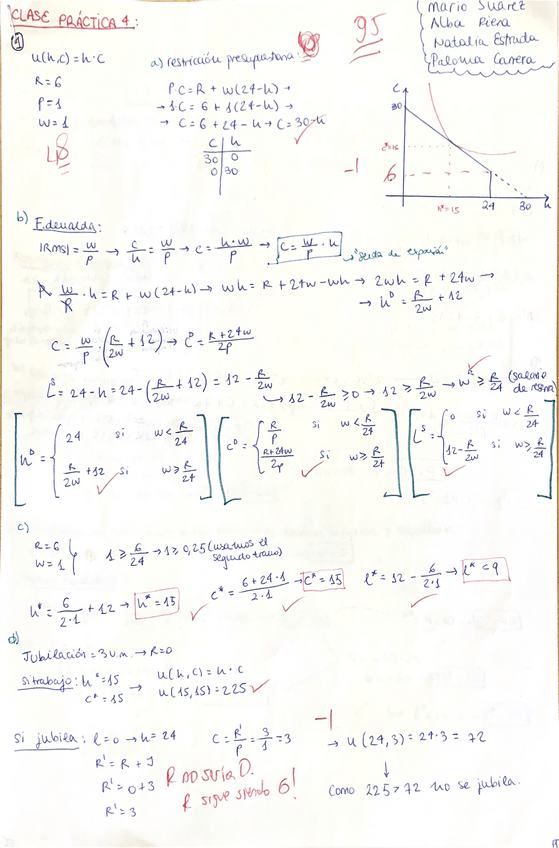 CLASE PRÁCTICA 4:
95
Mario Suárez
Alba Riera
Natalia Estrada
Paloma Carrera
①
u(h,c)=h·c
R=6
P=1
W=1
a) restricción presupuestaria:
P·C=R+w(24-h) →
→1·C=6+1(24-h) →
→ C=6+24-h → C=30-h
C | h
30 | 0
0 | 30
-1
C
30
C*=15
6
h*=15
24
30
h
b) Edenalda:
|RMS|=w/P → C/h=w/P → C=h·w/P → C=w/P·h
"senda de expansión"
P·w/P·h=R+w(24-h) → wh=R+24w-wh → 2wh=R+24w →
→ h^D=R/2w+12
C=w/P·(R/2w+12) → C^D=R+24w/2P
L^S=24-h=24-(R/2w+12)=12-R/2w
→ 12-R/2w≥0 → 12≥R/2w → w^R≥R/24 (salario de reserva)
h^D={24 si w<R/24
R/2w+12 si w≥R/24
C^D={R/P si w<R/24
R+24w/2P si w≥R/24
L^S={0 si w<R/24
12-R/2w si w≥R/24
c)
R=6
W=1
1≥6/24→1≥0,25 (usamos el segundo tramo)
h*=6/2·1+12→h*=15
C*=6+24·1/2·1→C*=15
l*=12-6/2·1→l*=9
d)
Jubilación=3 u.m. →R=0
Si trabajo: h*=15
C*=15
→ u(h,c)=h·c
u(15,15)=225
Si jubila: l=0→h=24
R'=R+J
R'=0+3
R'=3
C=R'/P=3/1=3
-1
→ u(24,3)=24·3=72
R no sería 0.
R sigue siendo 6!
↓
Como 225>72 no se jubila.